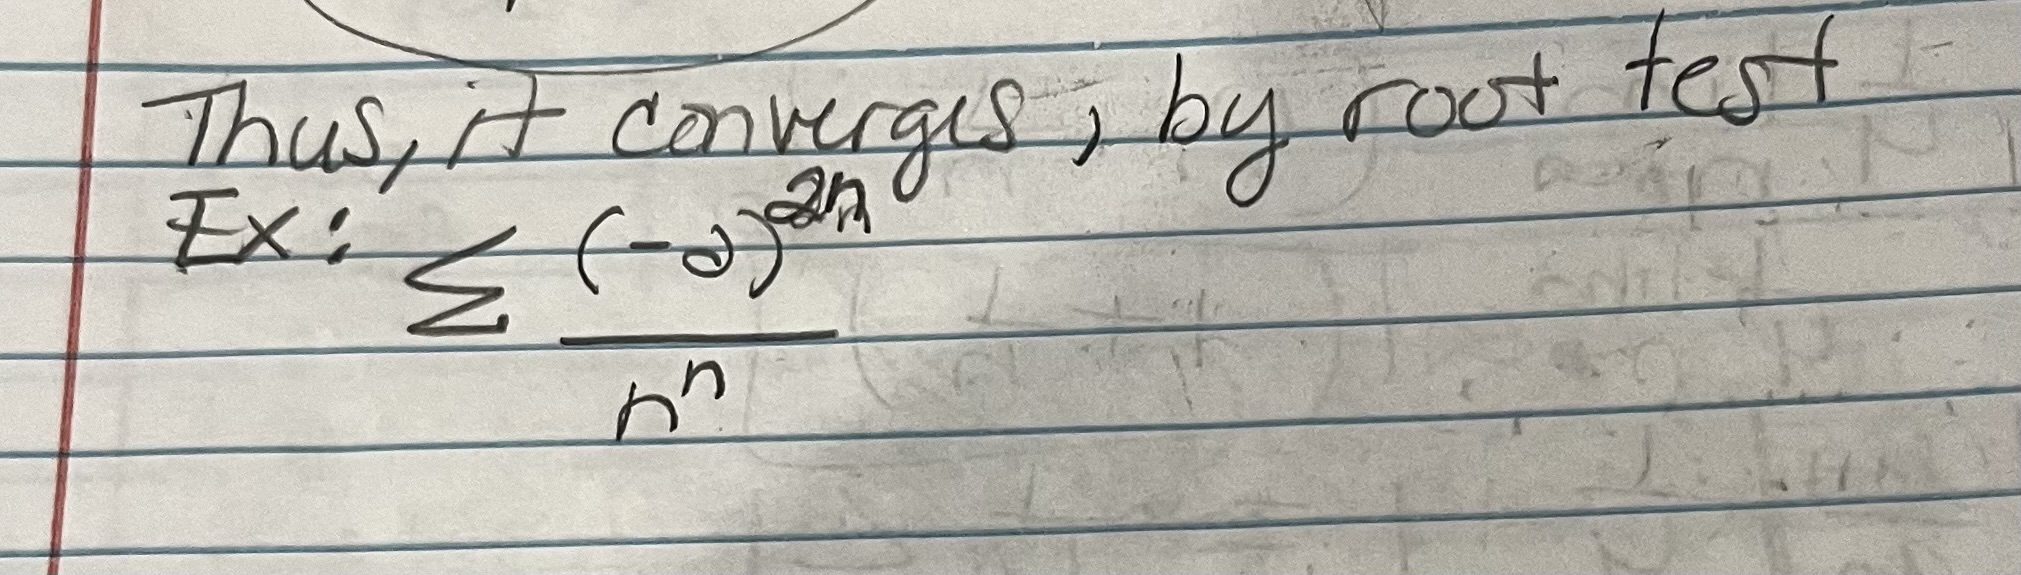 Thus, it converges, by root test
Ex: ∑ (-2)^{2n} / n^n